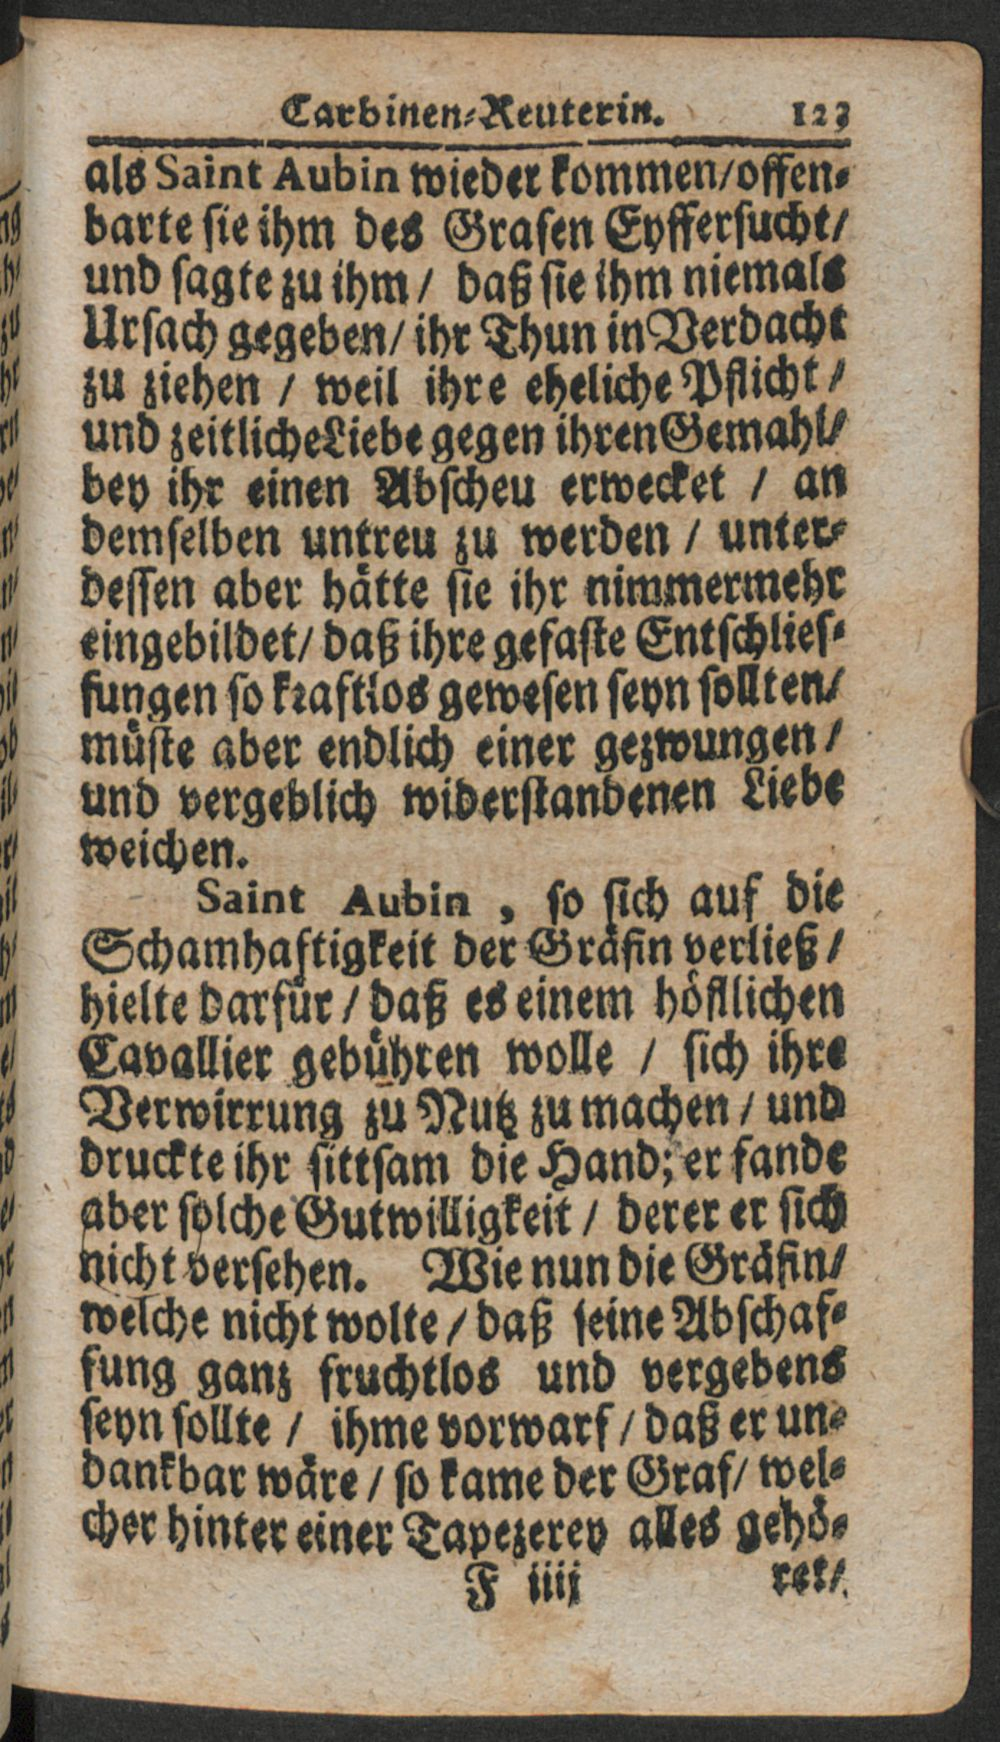 Carbinen-Reuterin. 123
als Saint Aubin wieder kommen/offen-
barte sie ihm des Grafen Eyffersucht/
und sagte zu ihm / daß sie ihm niemals
Ursach gegeben/ ihr Thun in Verdacht
zu ziehen / weil ihre eheliche Pflicht /
und zeitliche Liebe gegen ihren Gemahl/
bey ihr einen Abscheu erwecket / an
demselben untreu zu werden / unter-
dessen aber hätte sie ihr nimmermehr
eingebildet/ daß ihre gefaste Entschlies-
sungen so kraftlos gewesen seyn sollten/
müste aber endlich einer gezwungen /
und vergeblich widerstandenen Liebe
weichen.
Saint Aubin , so sich auf die
Schamhaftigkeit der Gräfin verließ /
hielte darfür / daß es einem höfllichen
Cavallier gebühren wolle / sich ihre
Verwirrung zu Nutz zu machen / und
druckte ihr sittsam die Hand; er fande
aber solche Gutwilligkeit / derer er sich
nicht versehen. Wie nun die Gräfin/
welche nicht wolte / daß seine Abschaf-
fung ganz fruchtlos und vergebens
seyn sollte / ihme vorwarf / daß er un-
dankbar wäre / so kame der Graf/ wel-
cher hinter einer Tapezerey alles gehö-
F iiij ret/